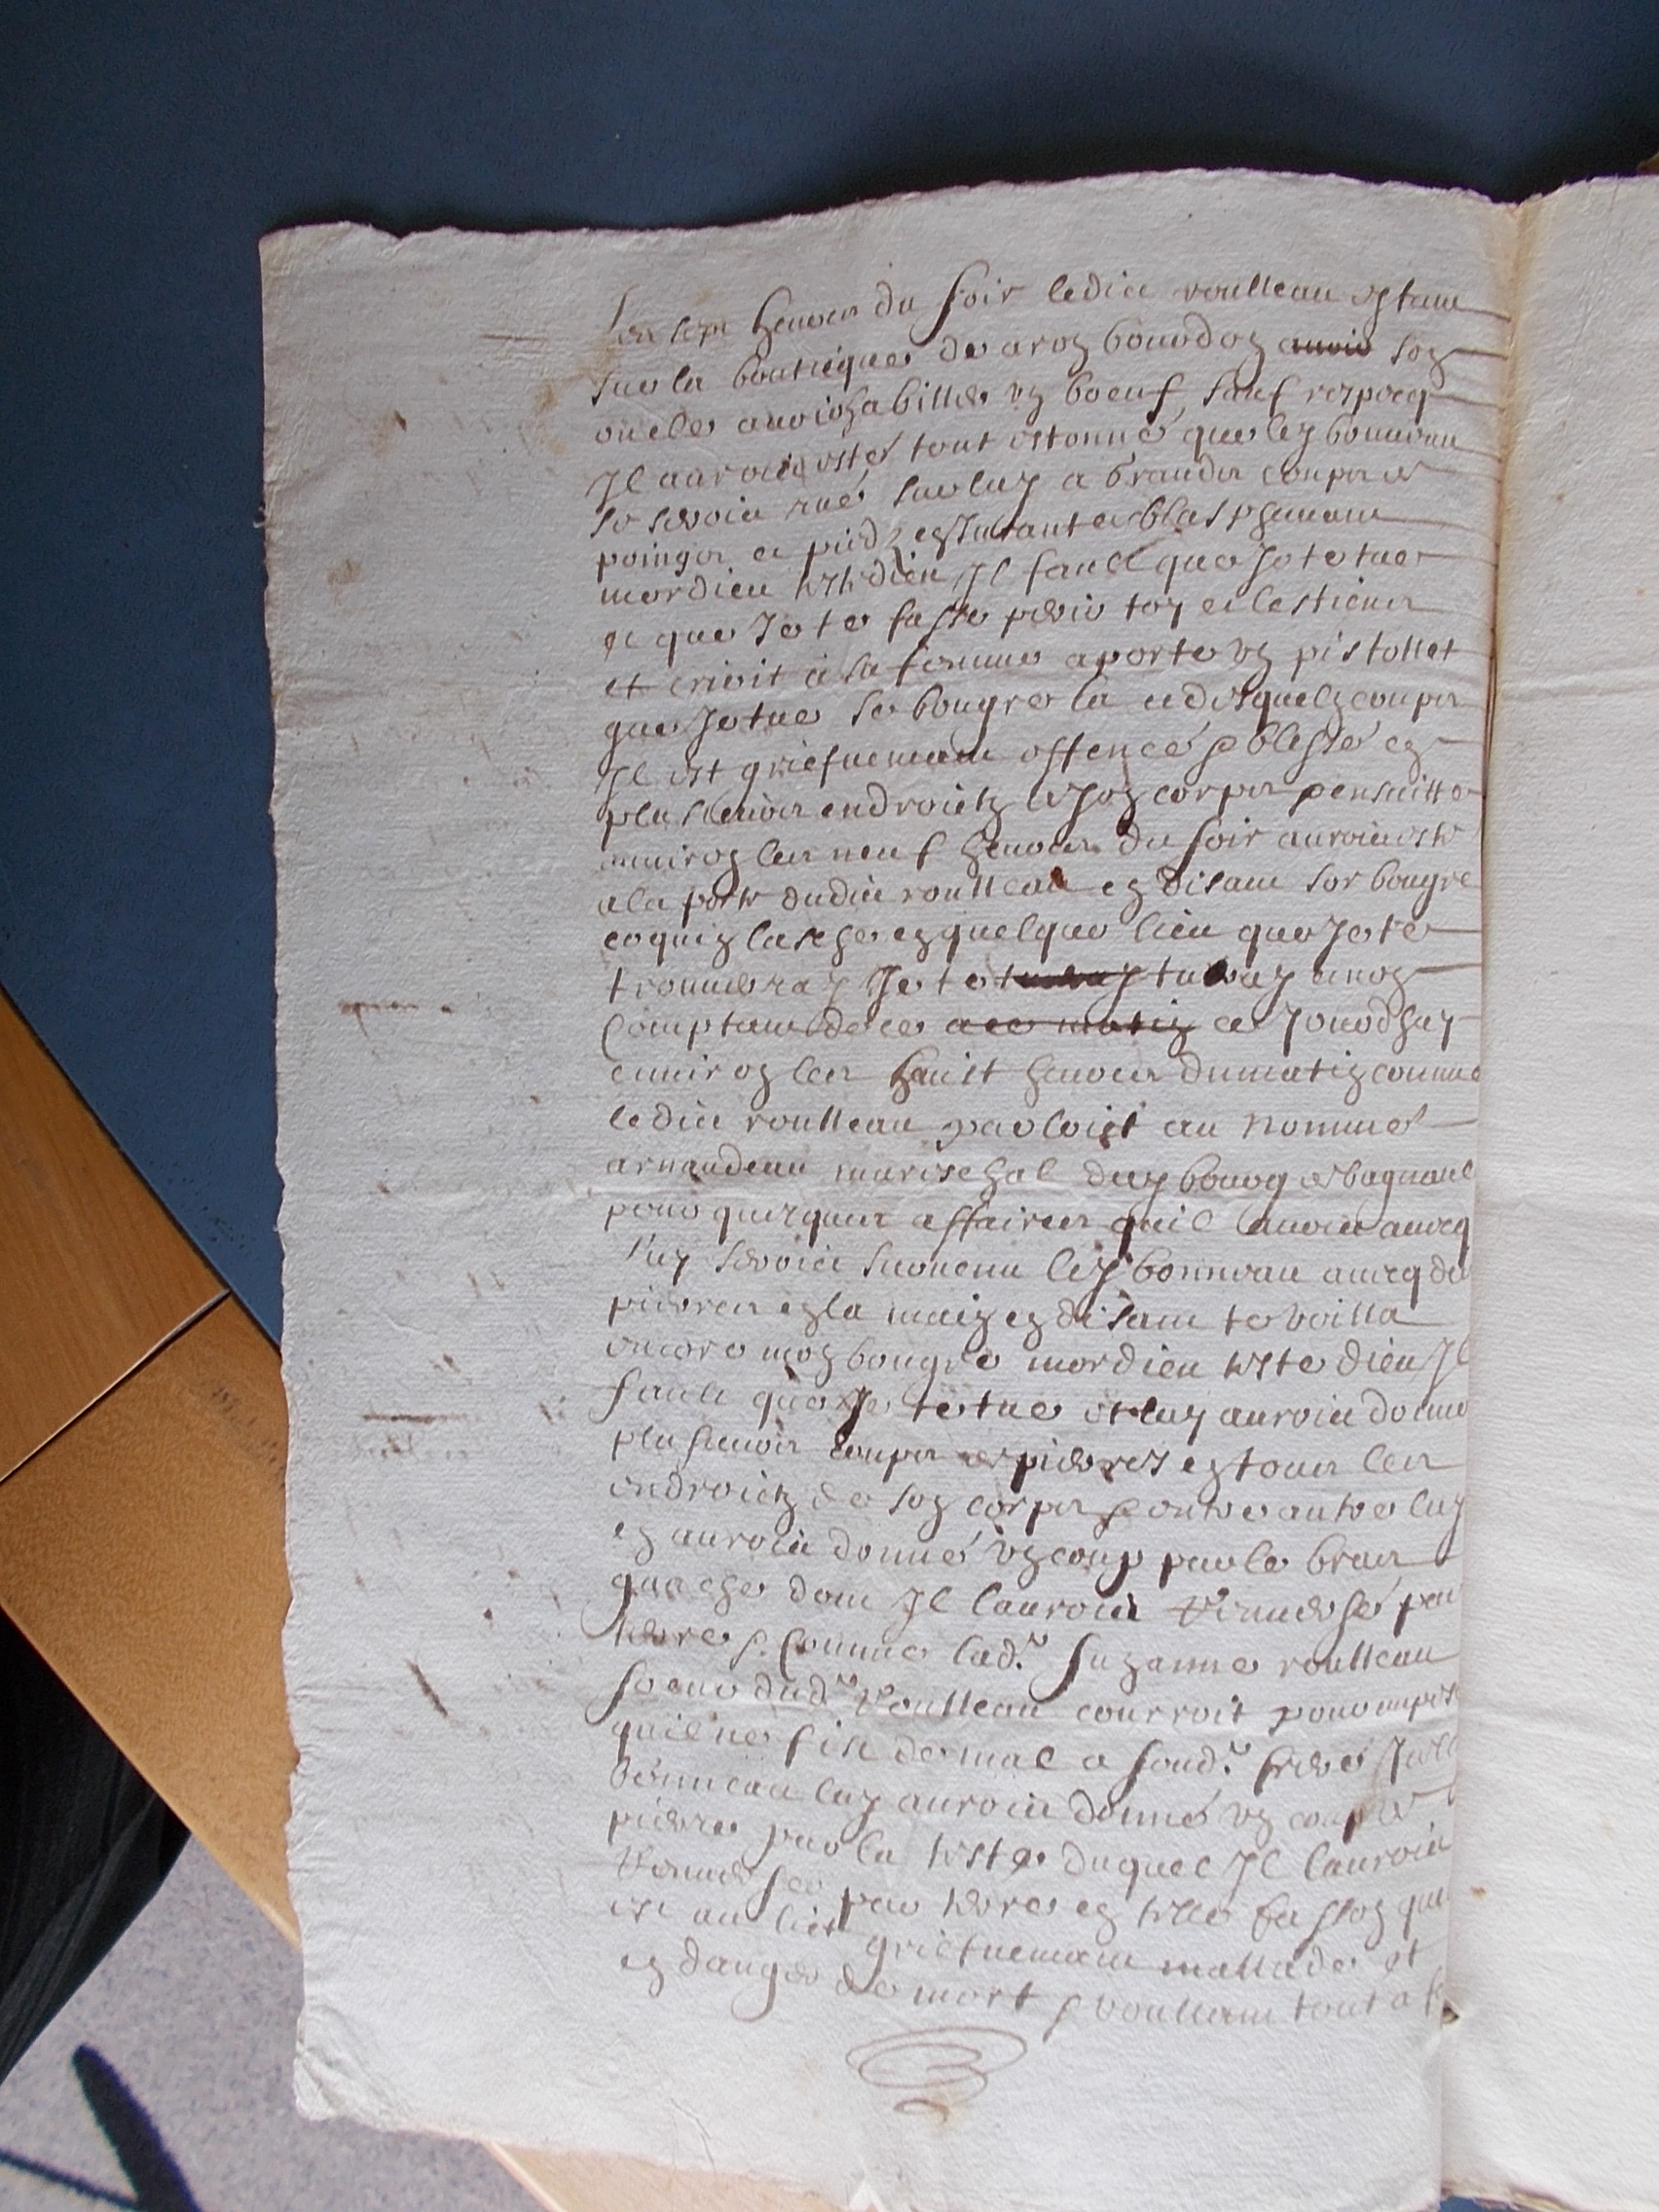 les sept heures du soir ledict roulleau estant
sur la boutique de aron bourdon soz
ou elle avoit habillé ung boeuf sauf respecq
Il auroict esté tout estonné que ley bonneau
se seroict rué sur luy a grander coups de
poingcz et piedz en Jurant et blasphemant
mordieu teste dieu Il fault que Je te tue
et que Je te fasse perir toy et les tiens
et crioit à sa femme aporte ung pistollet
que Je tue se bougre la et desquelz coups
Il est griefvement offencé & blessé en
plusieurs endroictz de son corps & ensuitte
environ les neuf heures du soir auroict esté
a la porte dudict roulleau en disant sor bougre
coquin lasche en quelque lieu que Je te
trouveray Je te tueray et non
comptant de ce ce Jourdhuy
environ les huict heures du matin comme
ledict roulleau parloict au nommé
arnaudeau mareschal du bourg de bagnault
pour quezques affaires quil avoict avecq
luy seroict survenu ley bonneau avecq des
pierres en la main en disant te voilla
encore mon bougre mordieu teste dieu Il
fault que Je te tue et luy auroict donné
plusieurs coups de pierres en tous les
endroictz de son corps & entre autre luy
en auroict donné ung coup par le bras
gauche dont Il lauroict renversé par
terre & comme lad.te suzanne roulleau
soeur dud.t roulleau courroit pour empes
quil ne fist de mal a sond.t frere
bonneau luy auroict donné ung coup de
pierre par la teste duquel Il lauroict
renversee par terre en telle fasson que
est au lict griefvement mallade et
en danger de mort & voullant tout a f